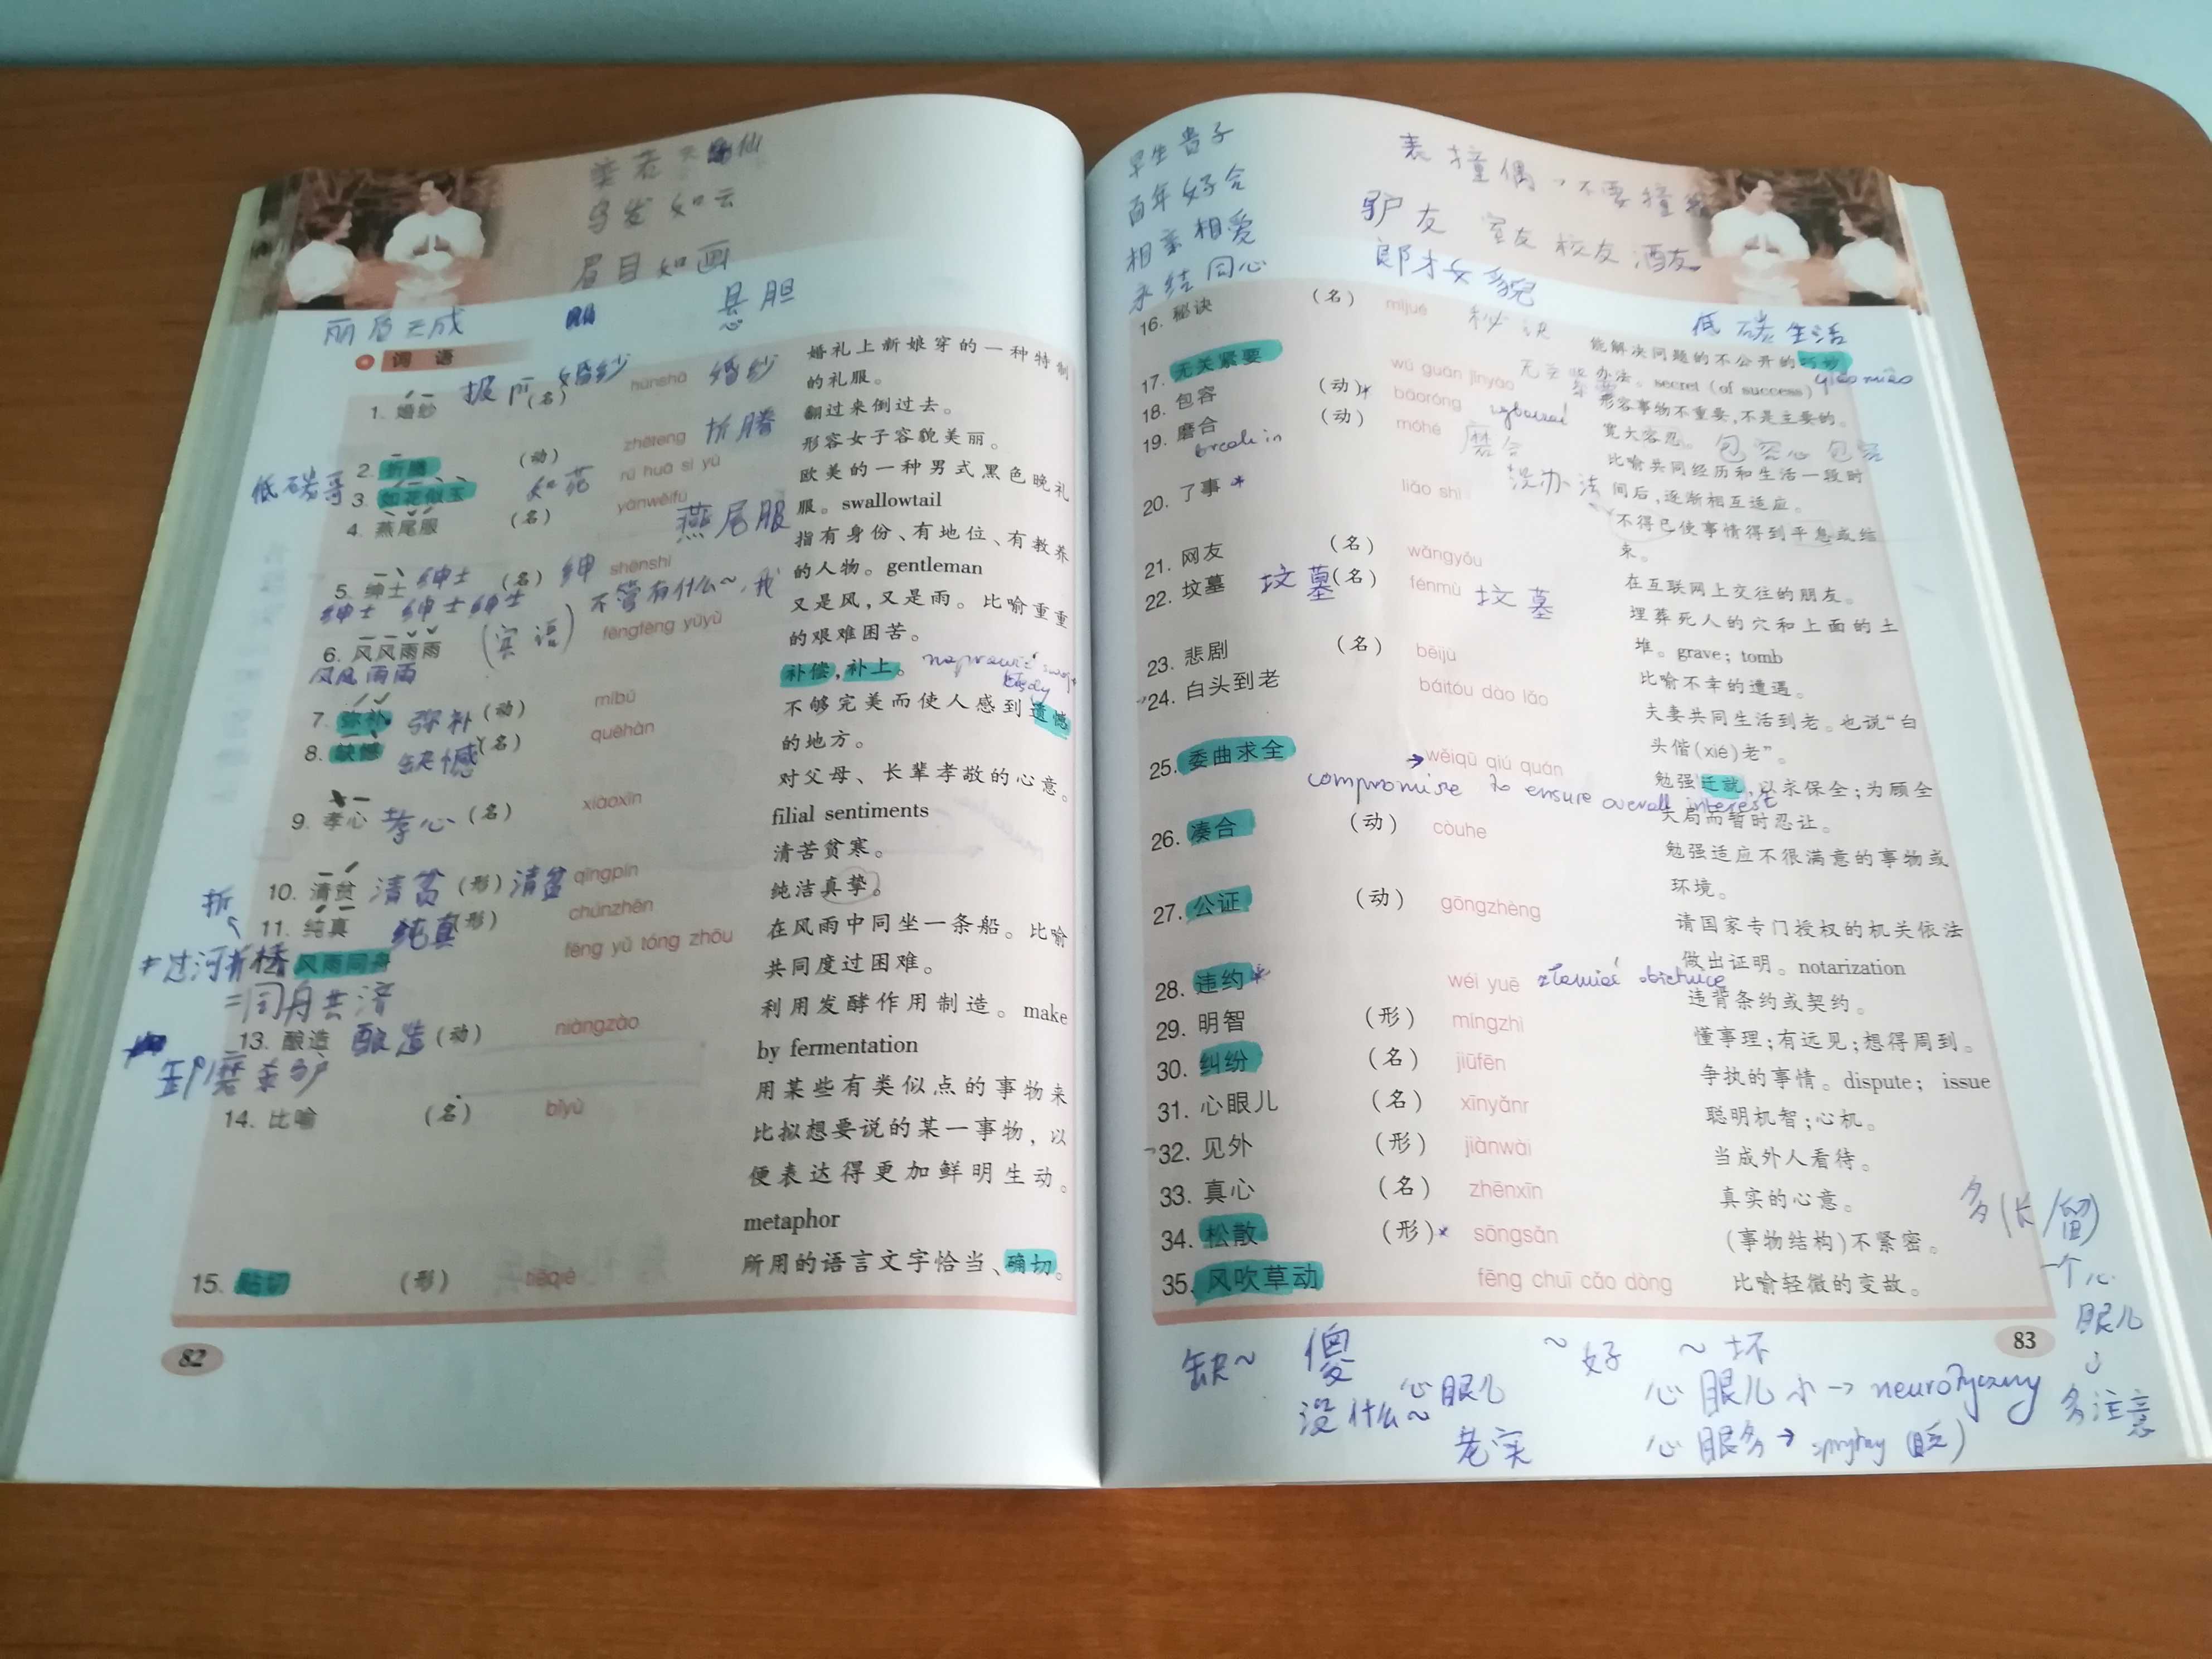 美若天仙
乌发如云
眉目如画
悬胆
词语
1. 婚纱 披 (名) 婚纱 hūnshā 婚纱 婚礼上新娘穿的一种特制
的礼服。
2. 折腾 (动) zhēteng 折腾 翻过来倒过去。
低碳哥
3. 如花似玉 如花 rú huā sì yù 形容女子容貌美丽。
4. 燕尾服 (名) yànwěifú 燕尾服 欧美的一种男式黑色晚礼
服。swallowtail
5. 绅士 绅士 (名) 绅 shēnshì 指有身份、有地位、有教养
的人物。gentleman
绅士 绅士 绅士
不管有什么~，我
6. 风风雨雨 (宾语) fēngfēng yǔyǔ 又是风，又是雨。比喻重重
的艰难困苦。
风风雨雨
7. 弥补 弥补 (动) míbǔ 补偿，补上。
8. 缺憾 缺憾 (名) quēhàn 不够完美而使人感到遗憾
的地方。
9. 孝心 孝心 (名) xiàoxīn 对父母、长辈孝敬的心意。
filial sentiments
10. 清贫 清贫 (形) 清贫 qīngpín 清苦贫寒。
折
11. 纯真 纯真 (形) chúnzhēn 纯洁真挚。
≠过河拆桥 风雨同舟 fēng yǔ tóng zhōu 在风雨中同坐一条船。比喻
共同度过困难。
=同舟共济
13. 酿造 酿造 (动) niàngzào 利用发酵作用制造。make
by fermentation
卸磨杀驴
14. 比喻 (名) bǐyù 用某些有类似点的事物来
比拟想要说的某一事物，以
便表达得更加鲜明生动。
metaphor
15. 贴切 (形) tiēqiè 所用的语言文字恰当、确切。
82
早生贵子
百年好合
相亲相爱
永结同心
驴友 室友 校友 酒友
郎才女貌
低碳生活
16. 秘诀 (名) mìjué 秘诀 能解决问题的不公开的巧妙
办法。secret (of success) qiǎomiào
17. 无关紧要 wú guān jǐnyào 形容事物不重要，不是主要的。
18. 包容 (动)* bāoróng 宽大容忍。 包容心 包容
19. 磨合 (动) móhé 磨合 比喻共同经历和生活一段时
间后，逐渐相互适应。
break in
20. 了事 * liǎo shì 没办法 不得已使事情得到平息或结
束。
21. 网友 (名) wǎngyǒu 在互联网上交往的朋友。
22. 坟墓 坟墓 (名) fénmù 坟墓 埋葬死人的穴和上面的土
堆。grave; tomb
23. 悲剧 (名) bēijù 比喻不幸的遭遇。
24. 白头到老 báitóu dào lǎo 夫妻共同生活到老。也说“白
头偕(xié)老”。
25. 委曲求全 wěiqū qiú quán 勉强迁就，以求保全；为顾全
大局而暂时忍让。
compromise to ensure overall interest
26. 凑合 (动) còuhe 勉强适应不很满意的事物或
环境。
27. 公证 (动) gōngzhèng 请国家专门授权的机关依法
做出证明。notarization
28. 违约 * wéi yuē złamać obietnicę 违背条约或契约。
29. 明智 (形) míngzhì 懂事理；有远见；想得周到。
30. 纠纷 (名) jiūfēn 争执的事情。dispute; issue
31. 心眼儿 (名) xīnyǎnr 聪明机智；心机。
32. 见外 (形) jiànwài 当成外人看待。
33. 真心 (名) zhēnxīn 真实的心意。
34. 松散 (形)* sōngsǎn (事物结构)不紧密。
35. 风吹草动 fēng chuī cǎo dòng 比喻轻微的变故。
多(长/留)
一个心
眼儿
↓
多注意
83
缺~ 傻 ~好 ~坏
没什么心眼儿 心眼儿小→neurotyczny
老实 心眼多→sprytny (贬)